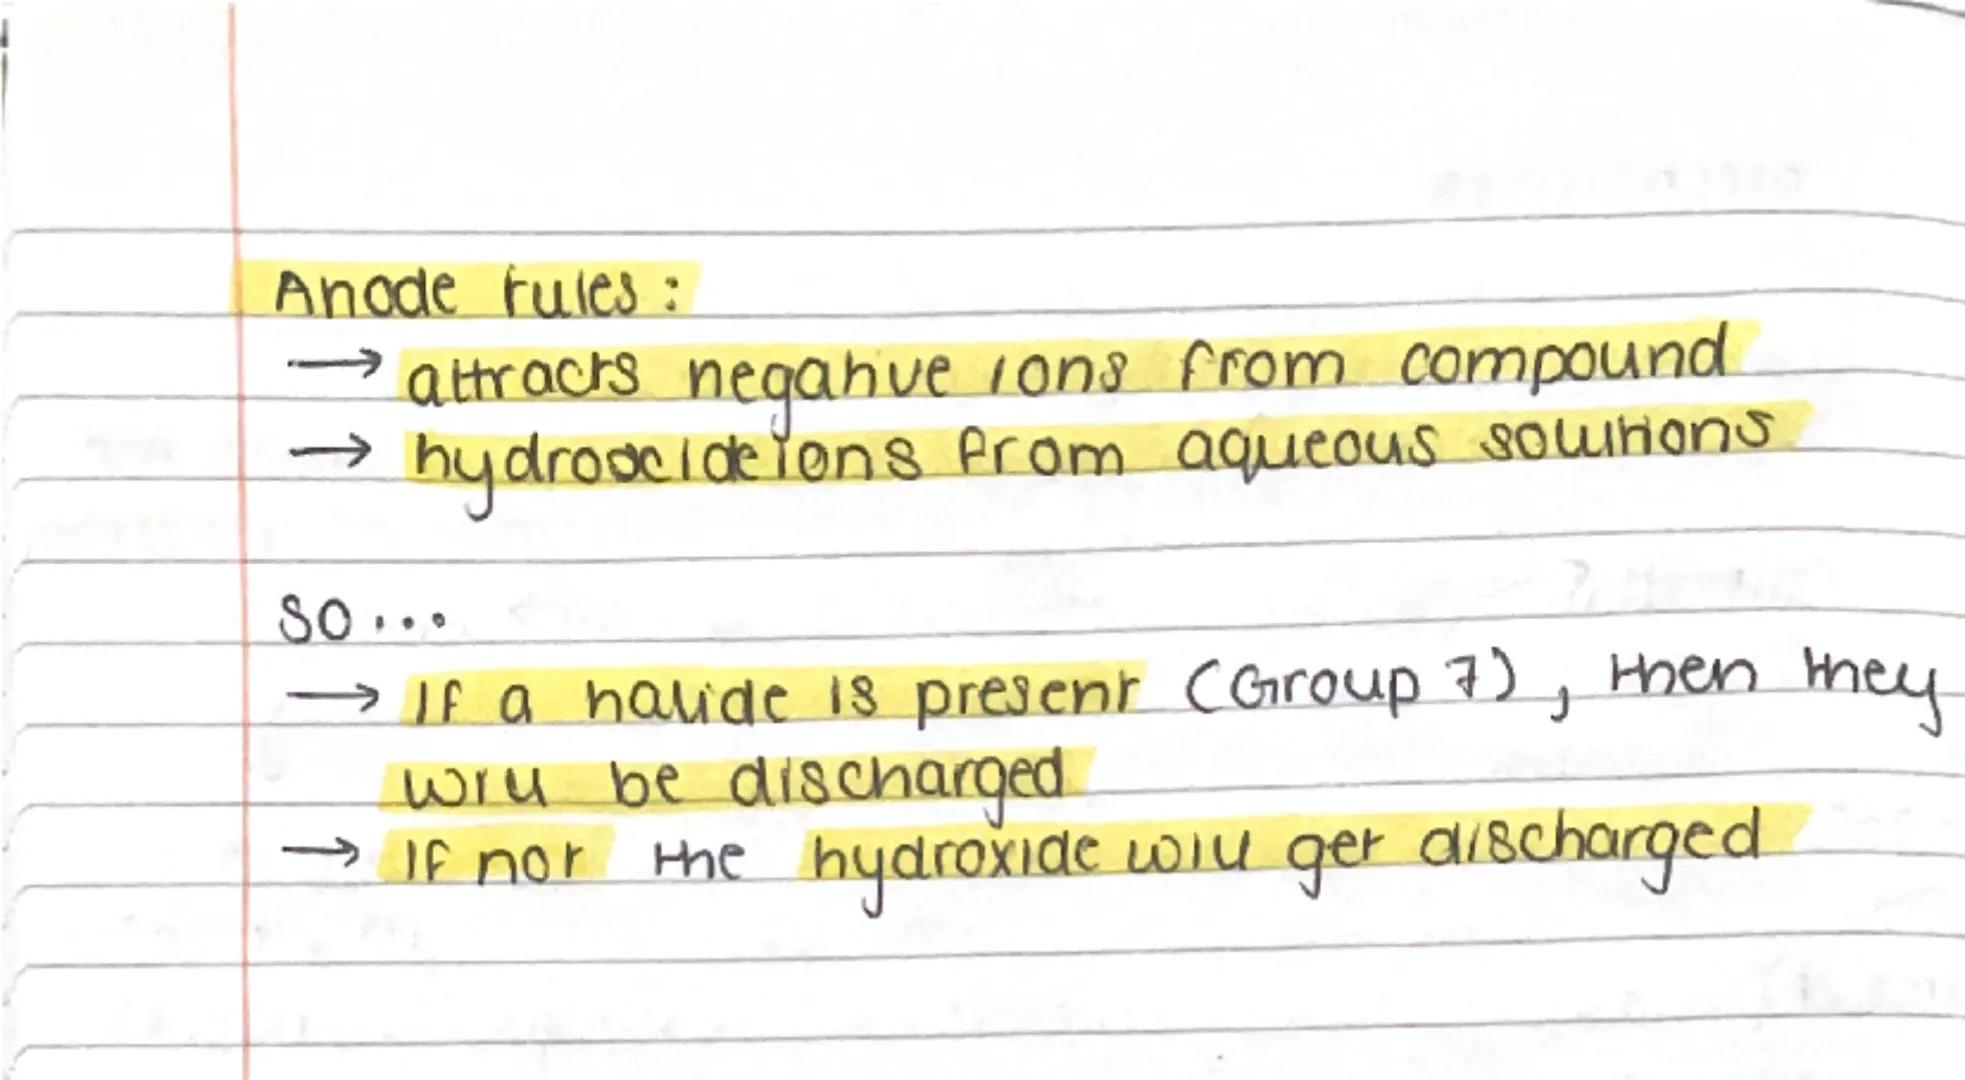 Anode rules :
→ attracts negative ions from compound
→ hydroxide ions from aqueous solutions
so...
→ If a halide is present (Group 7), then they
will be discharged
→ If not the hydroxide will get discharged